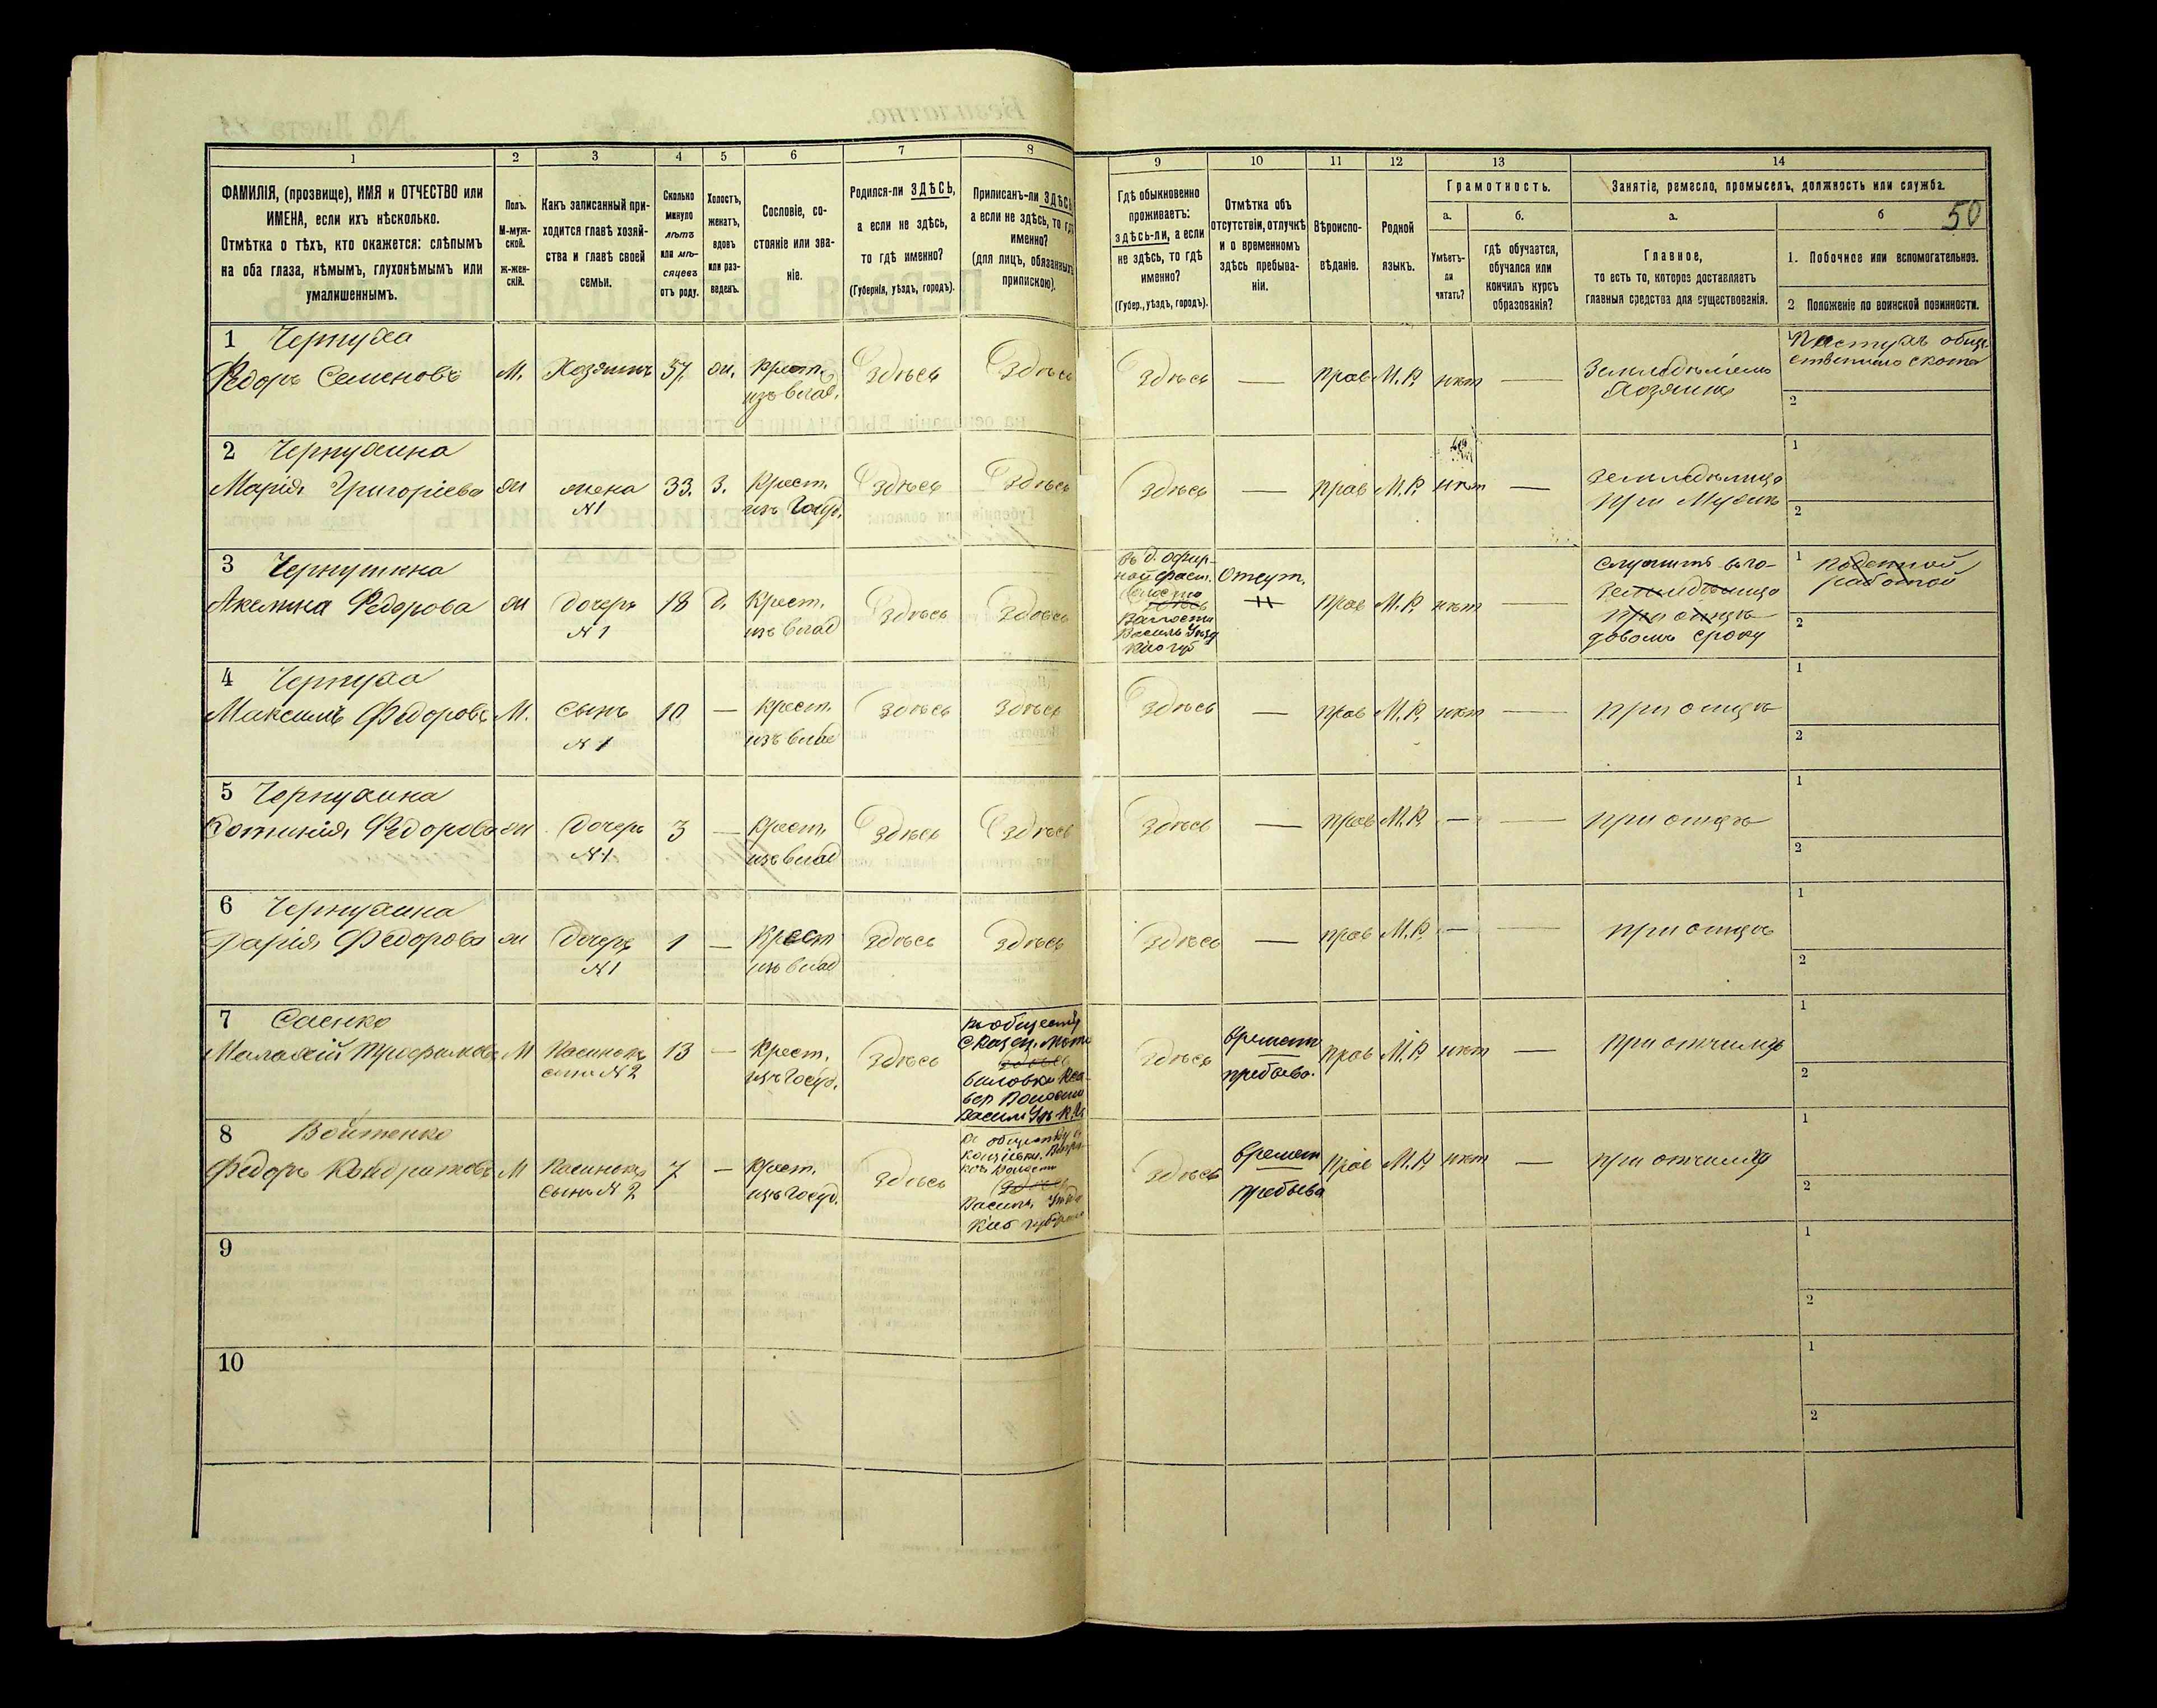 50
1 2 3 4 5 6 7 8 9 10 11 12 13 14
ФАМИЛІЯ, (прозвище), ИМЯ и ОТЧЕСТВО или
ИМЕНА, если ихъ нѣсколько.
Отмѣтка о тѣхъ, кто окажется: слѣпымъ
на оба глаза, нѣмымъ, глухонѣмымъ или
умалишеннымъ.
Полъ.
М-муж-
ской.
Ж-жен-
скій.
Какъ записанный при-
ходится главѣ хозяй-
ства и главѣ своей
семьи.
Сколько
минуло
лѣтъ
или мѣ-
сяцевъ
отъ роду.
Холостъ,
женатъ,
вдовъ
или раз-
веденъ.
Сословіе, со-
стояніе или зва-
ніе.
Родился-ли ЗДѢСЬ,
а если не здѣсь,
то гдѣ именно?
(Губернія, уѣздъ, городъ).
Приписанъ-ли ЗДѢСЬ,
а если не здѣсь, то гдѣ
именно?
(для лицъ, обязанныхъ
припискою).
Гдѣ обыкновенно
проживаетъ:
здѣсь-ли, а если
не здѣсь, то гдѣ
именно?
(Губер., уѣздъ, городъ).
Отмѣтка объ
отсутствіи, отлучкѣ
и о временномъ
здѣсь пребыва-
ніи.
Вѣроиспо-
вѣданіе.
Родной
языкъ.
Грамотность.
а.
Умѣетъ-
ли
читать?
б.
гдѣ обучается,
обучался или
кончилъ курсъ
образованія?
Занятіе, ремесло, промыселъ, должность или служба.
а.
Главное,
то есть то, которое доставляетъ
главныя средства для существованія.
б
1. Побочное или вспомогательное.
2 Положеніе по воинской повинности.
1 Чернуха
Федоръ Семеновъ М. Хозяинъ 57. ж. Крест. Здѣсь Здѣсь Здѣсь — прав М.Р. нѣт — Земледѣлецъ
из влад. Хозяинъ
1 Пастухъ обще-
ственнаго скота
2
2 Чернухина
Марія Григоріева ж жена 33. З. Крест. Здѣсь Здѣсь Здѣсь — прав М.Р. нѣт — Земледѣлица
№1 изъ Госуд. при Мужѣ
1
2
3 Чернухина
Акилина Федорова ж дочерь 18 д. Крест. Здѣсь Здѣсь
№1 изъ влад
Здѣсь
Волости
Василь Уѣзд
Кіев губ
Отсут. прав М.Р. нѣт —
Служитъ въ го-
Земледѣлица
при отцѣ
довомъ сроку
1 Поденной
работой
2
4 Чернуха
Максимъ Федоровъ М. Сынъ 10 — Крест. Здѣсь Здѣсь Здѣсь — прав М.Р. нѣт — при отцѣ
№1 изъ влад
1
2
5 Чернухина
Фотинія Федорова ж Дочерь 3 — Крест. Здѣсь Здѣсь Здѣсь — прав М.Р. — — при отцѣ
№1 изъ влад
1
2
6 Чернухина
Дарія Федорова ж Дочерь 1 — Крест Здѣсь Здѣсь Здѣсь — прав М.Р. — — при отцѣ
№1 изъ влад
1
2
7 Саенко
Малахій Трофимовъ М Пасинокъ 13 — Крест. Здѣсь
сынъ №2 изъ Госуд.
къ обществу
Здѣсь
Волости
Здѣсь времен пребыва. прав М.Р. нѣт — при отчимѣ
1
2
8 Войтенко
Федоръ Кондратовъ М Пасинокъ 7 — Крест. Здѣсь
сынъ №2 изъ Госуд.
къ обществу
Волости
Здѣсь
Василь. Уѣзда
Кіев губерніи
Здѣсь времен пребыва прав М.Р. нѣт — при отчимѣ
1
2
9
1
2
10
1
2